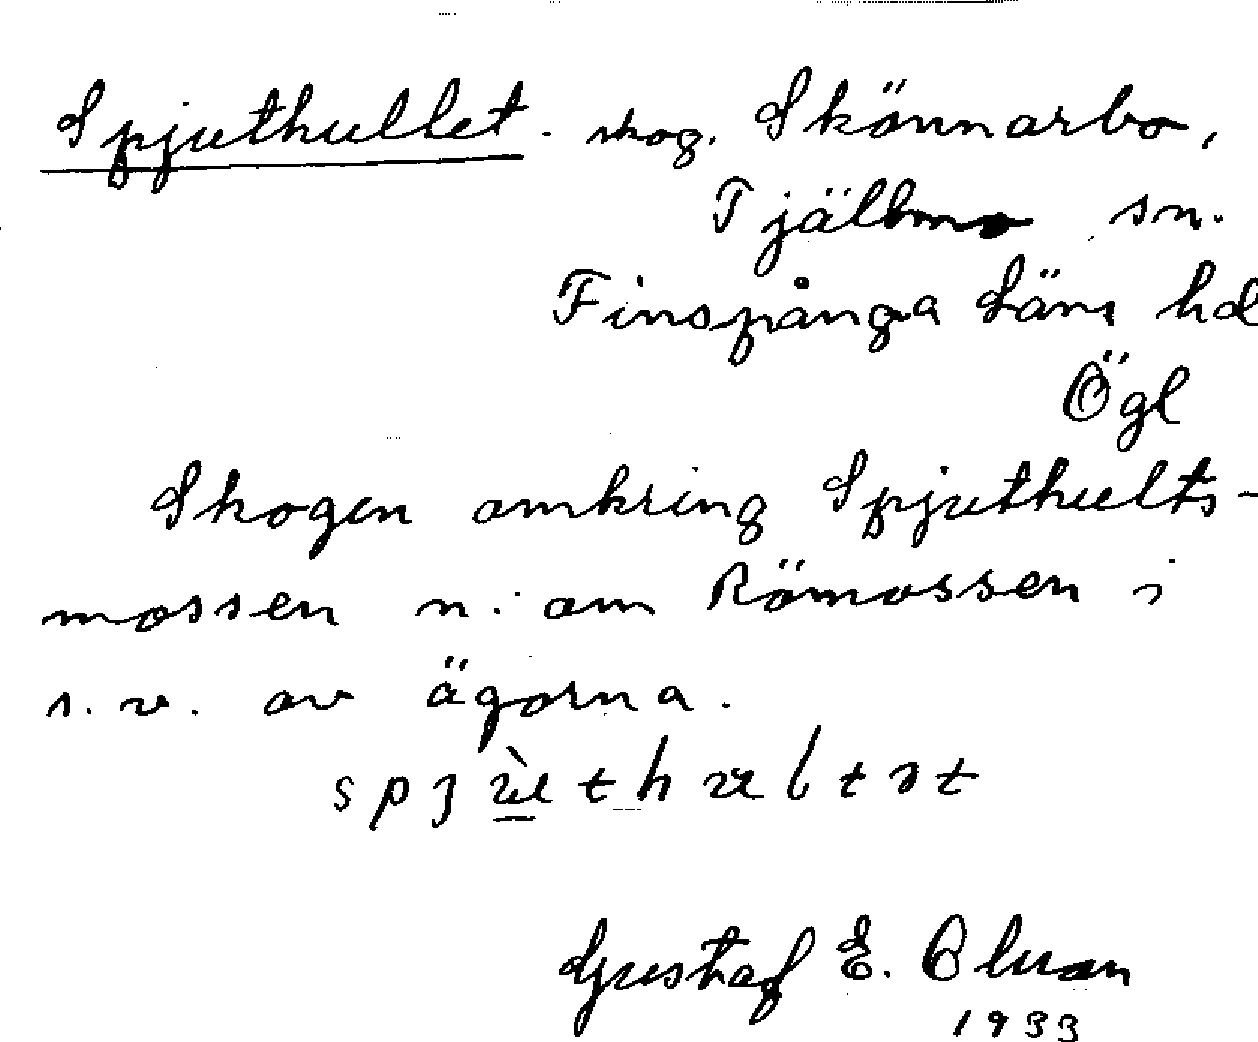 Spjuthullet. skog. Skönnarbo,
Tjällmo sn.
Finspånga Läns hd
Ögl
Skogen omkring Spjuthults-
mossen n. om Römossen i
s.v. av ägorna.
Gustaf E. Olsson
1933